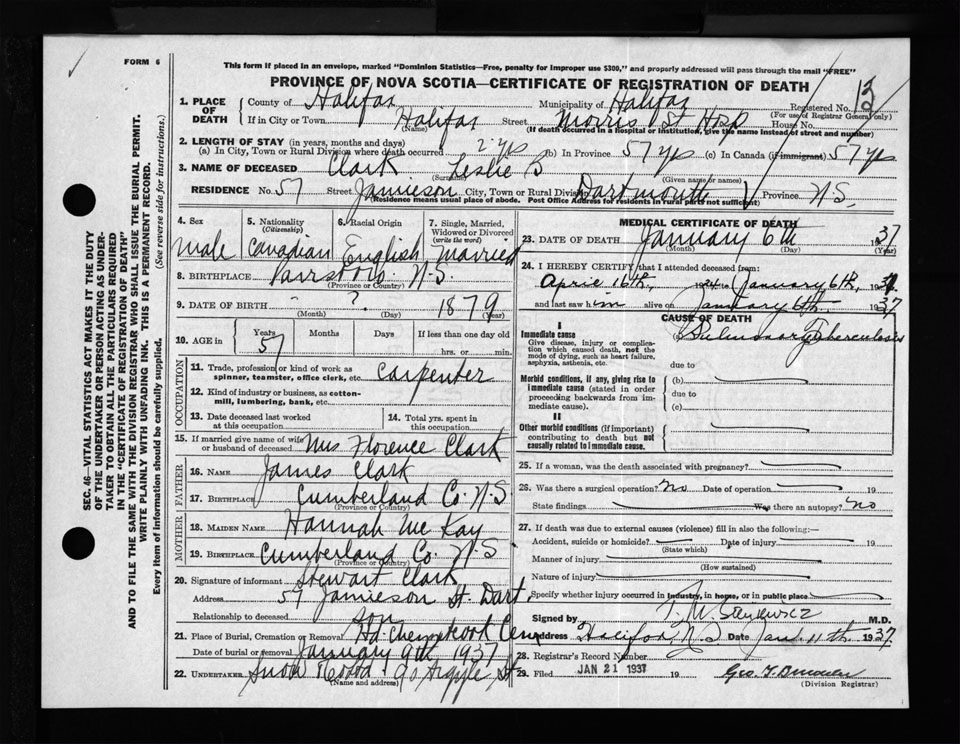 FORM 6
This form if placed in an envelope, marked "Dominion Statistics—Free, penalty for improper use $300," and properly addressed will pass through the mail "FREE"
PROVINCE OF NOVA SCOTIA—CERTIFICATE OF REGISTRATION OF DEATH
SEC. 46—VITAL STATISTICS ACT MAKES IT THE DUTY
OF THE UNDERTAKER OR PERSON ACTING AS UNDER-
TAKER TO OBTAIN ALL THE PARTICULARS REQUIRED
IN THE "CERTIFICATE OF REGISTRATION OF DEATH"
AND TO FILE THE SAME WITH THE DIVISION REGISTRAR WHO SHALL ISSUE THE BURIAL PERMIT.
WRITE PLAINLY WITH UNFADING INK. THIS IS A PERMANENT RECORD.
Every item of Information should be carefully supplied. (See reverse side for instructions.)
1. PLACE OF DEATH
County of Halifax Municipality of Halifax Registered No. 13
(For use of Registrar General only)
If in City or Town Halifax Street Morris St Hosp House No.
(Name) (If death occurred in a hospital or institution, give the name instead of street and number)
2. LENGTH OF STAY (in years, months and days)
(a) In City, Town or Rural Division where death occurred 2 yrs (b) In Province 57 yrs (c) In Canada (if immigrant) 57 yrs
3. NAME OF DECEASED Clark Leslie B
(Surname) (Given name or names)
RESIDENCE No. 57 Street Jamieson City, Town or Rural Division Dartmouth Province N.S.
(Residence means usual place of abode. Post Office Address for residents in rural parts not sufficient)
4. Sex male
5. Nationality (Citizenship) Canadian
6. Racial Origin English
7. Single, Married, Widowed or Divorced (write the word) Married
8. BIRTHPLACE Parrsboro. N.S.
(Province or Country)
9. DATE OF BIRTH - ? 1879
(Month) (Day) (Year)
10. AGE in Years 57 Months Days If less than one day old
hrs. or min.
OCCUPATION
11. Trade, profession or kind of work as spinner, teamster, office clerk, etc. Carpenter
12. Kind of industry or business, as cotton-mill, lumbering, bank, etc.
13. Date deceased last worked at this occupation
14. Total yrs. spent in this occupation
15. If married give name of wife or husband of deceased Mrs Florence Clark
FATHER
16. NAME James Clark
17. BIRTHPLACE Cumberland Co. N.S
(Province or Country)
MOTHER
18. MAIDEN NAME Hannah McKay
19. BIRTHPLACE Cumberland Co. N.S
(Province or Country)
20. Signature of informant Stewart Clark
Address 57 Jamieson St. Dart.
Relationship to deceased son
21. Place of Burial, Cremation or Removal Hd. Chezzetcook Cem
Date of burial or removal January 9th 1937
22. UNDERTAKER Snow 90 Argyle St
(Name and address)
MEDICAL CERTIFICATE OF DEATH
23. DATE OF DEATH January 6th 1937
(Month) (Day) (Year)
24. I HEREBY CERTIFY that I attended deceased from:
April 16th, to January 6th, 1937
and last saw him alive on January 6th. 1937
CAUSE OF DEATH
I
Immediate cause
Give disease, injury or complication which caused death, not the mode of dying, such as heart failure, asphyxia, asthenia, etc.
(a) Pulmonary Tuberculosis
due to
Morbid conditions, if any, giving rise to immediate cause (stated in order proceeding backwards from immediate cause).
(b)
due to
(c)
II
Other morbid conditions (if important) contributing to death but not causally related to immediate cause.
25. If a woman, was the death associated with pregnancy?
26. Was there a surgical operation? No Date of operation 19
State findings Was there an autopsy? No
27. If death was due to external causes (violence) fill in also the following:—
Accident, suicide or homicide? Date of injury 19
(State which)
Manner of injury
(How sustained)
Nature of injury
Specify whether injury occurred in Industry, in home, or in public place
Signed by M.D.
Address Halifax N.S Date Jan. 11th. 1937
28. Registrar's Record Number
29. Filed JAN 21 1937 19
(Division Registrar)